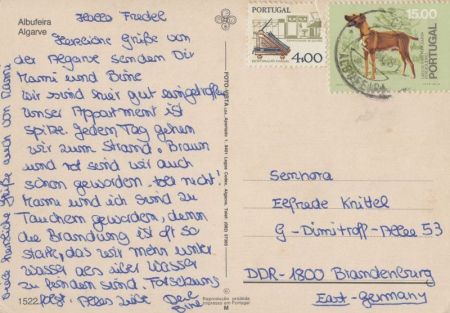 Albufeira
Algarve
Hallo Friedel
Herzliche Grüße von
der Algarve senden Dir
Mami und Bine
Wir sind hier gut eingetroffen
Unser Appartment ist
spitze. Jeden Tag gehen
wir zum Strand. Braun
und rot sind wir auch
schon geworden - toll nicht!
Mami und ich sind zu
Tauchern geworden, denn
die Brandung ist oft so
stark, das wir mehr unter
Wasser als über Wasser
zu finden sind. Fortsetzung
folgt. Alles Liebe Deine
Bine
Viele herzliche Grüße auch von Mami
1522
FOTO-VISTA
Reprodução proibida
Impresso em Portugal
M
PORTUGAL
4$00
15.00
PORTUGAL
ALBUFEIRA
Senhora
Elfrede Knittel
G-Dimitroff-Allee 53
DDR-1800 Brandenburg
East-Germany